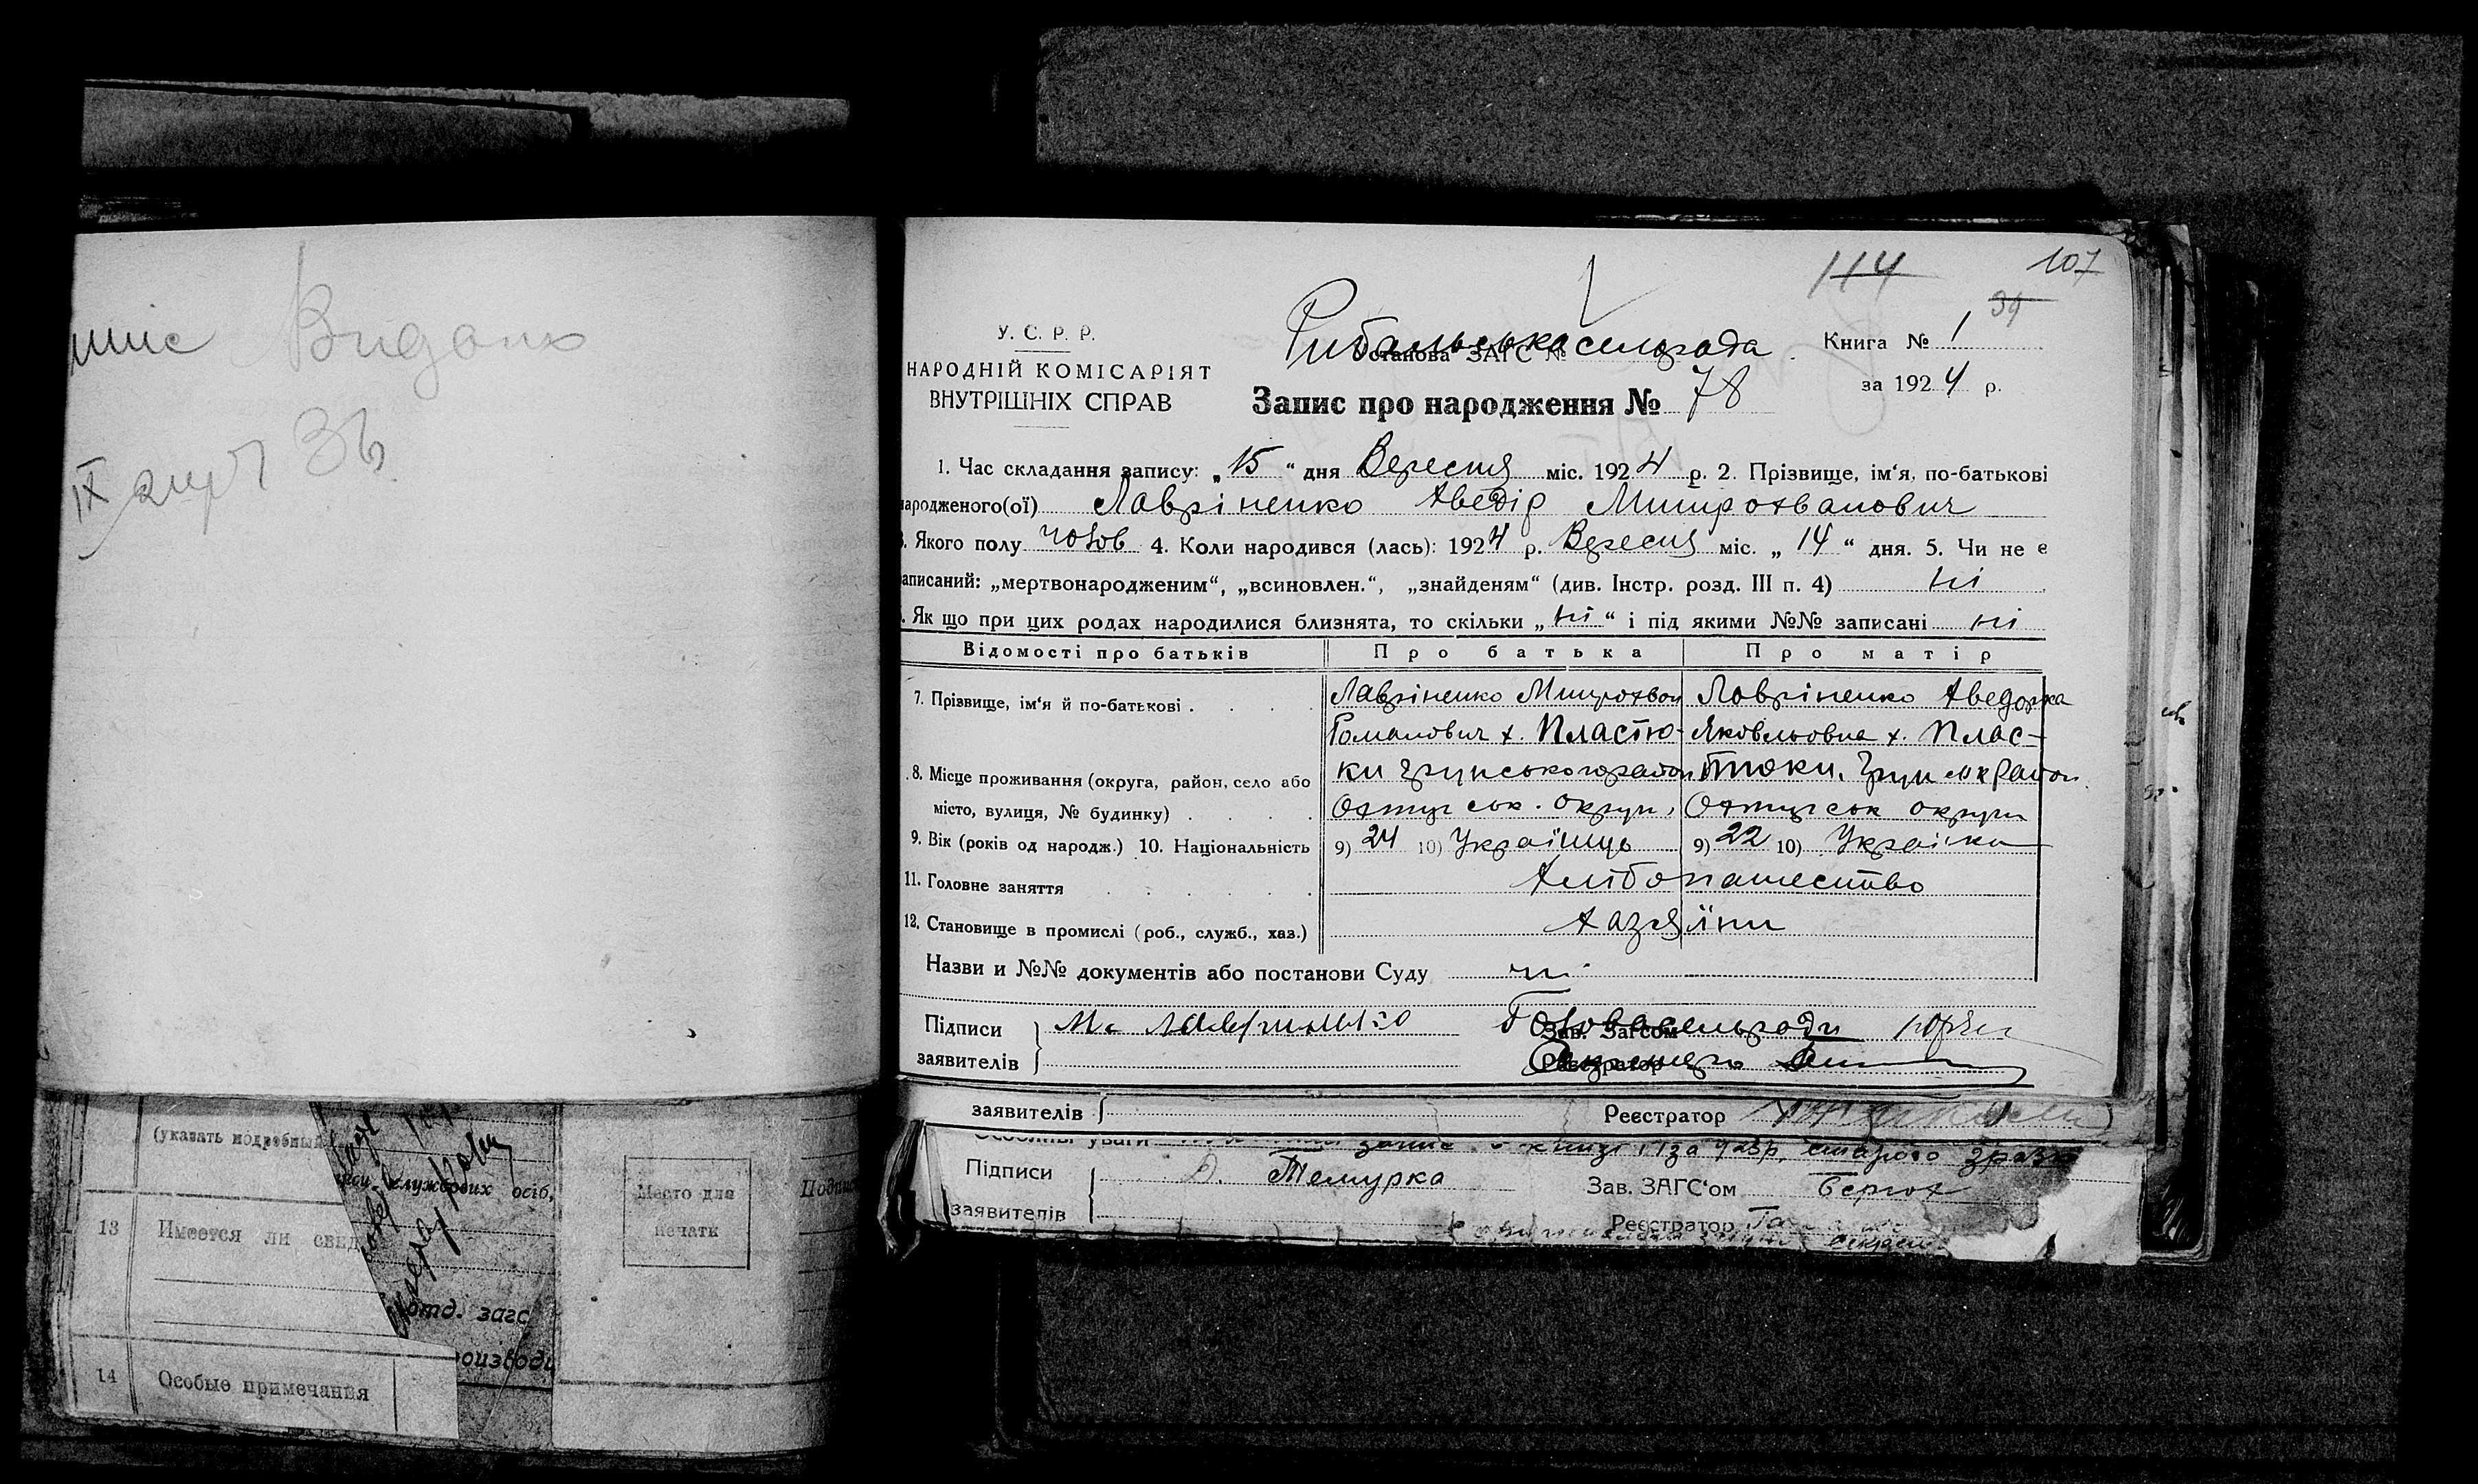 Видано
107
114
34
У. С. Р. Р.
НАРОДНІЙ КОМІСАРІЯТ
ВНУТРІШНІХ СПРАВ
Рибальська сельрада
Установа ЗАГС №
Книга № 1
за 1924 р.
Запис про народження № 78
1. Час складання запису: „15“ дня Вересня міс. 1924 р. 2. Прізвище, ім‘я, по-батькові
народженого(ої) Лавріненко Хведір Митрохванович
3. Якого полу чолов 4. Коли народився (лась): 1924 р. Вересня міс. „14“ дня. 5. Чи не є
записаний: „мертвонародженим“, „всиновлен.“, „знайденям“ (див. Інстр. розд. III п. 4) ні
6. Як що при цих родах народилися близнята, то скільки „ні“ і під якими №№ записані ні
Відомості про батьків Про батька Про матір
7. Прізвище, ім‘я й по-батькові . Лавріненко Митрохван Лавріненко Хведорка
Романович х. Пластю- Яковльовна х. Плас-
8. Місце проживання (округа, район, село або ки Грунського район тюки, Грун район
місто, вулиця, № будинку) Охтирськ. округи, Охтирськ округи
9. Вік (років од народж.) 10. Національність 9) 24 10) Українць 9) 22 10) Українка
11. Головне заняття Хлібопашество
12. Становище в промислі (роб., служб., хаз.) Хазяїни
Назви и №№ документів або постанови Суду ні
Підписи М. Лавриненко Голова сельради
Зав. Загсом
заявителів Секретарь
Реєстратор
заявителів Реєстратор
Особливі уваги запис книзі 1 за 1923р. старого
Підписи Д. Темурка Зав. ЗАГС‘ом
заявителів Реєстратор
(указать подробный
службових осіб,
Место для
печати
Подпись
13 Имеется ли свид
отд. загс
14 Особые примечания